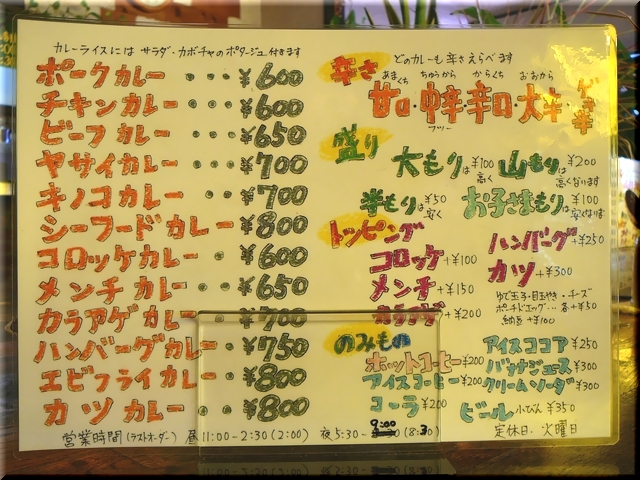 カレーライスには サラダ・カボチャのポタージュ付きます
ポークカレー ・・・ ¥600
チキンカレー ・・・ ¥600
ビーフカレー ・・・ ¥650
ヤサイカレー ・・・ ¥700
キノコカレー ・・・ ¥700
シーフードカレー ・ ¥800
コロッケカレー ・・ ¥600
メンチカレー ・・・ ¥650
カラアゲカレー ・・ ¥700
ハンバーグカレー ・ ¥750
エビフライカレー ・ ¥800
カツカレー ・・・ ¥800
辛さ どのカレーも辛さえらべます
あまくち ちゅうから からくち おおから
甘口・中辛・辛口・大辛・ゲキ辛
フツー
盛り
大もりは¥100高く 山もりは¥200高くなります
半もりは¥50安く お子さまもりは¥100安くなります
トッピング
コロッケ+¥100
メンチ+¥150
カラアゲ+¥200
ハンバーグ+¥250
カツ+¥300
ゆで玉子・目玉やき・チーズ
ポーチドエッグ… 各+¥50
納豆+¥100
のみもの
ホットコーヒー¥200
アイスコーヒー¥200
コーラ¥200
アイスココア¥250
バナナジュース¥300
クリームソーダ¥300
ビール 小びん¥350
営業時間(ラストオーダー) 昼11:00-2:30(2:00) 夜5:30-9:00(8:30)
定休日.火曜日